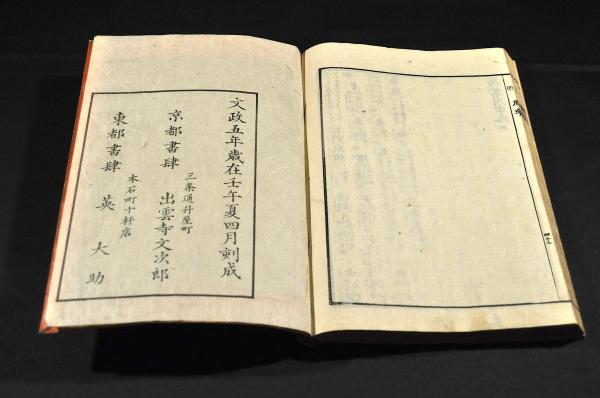 文政五年歳在壬午夏四月刻成
三条通升屋町
京都書肆 出雲寺文次郎
本石町十軒店
東都書肆 英大助